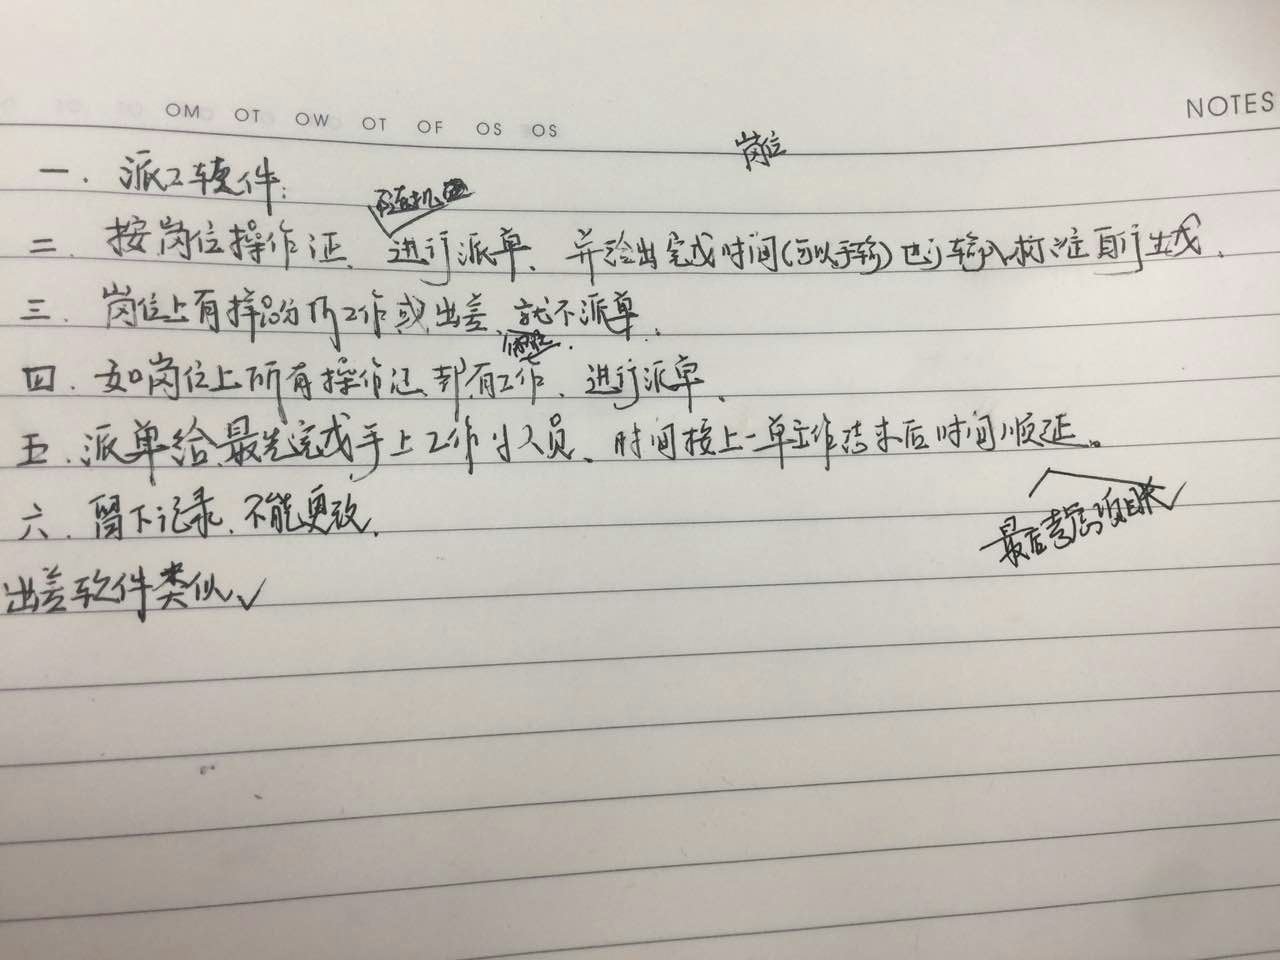 OM OT OW OT OF OS OS
NOTES
岗位
一. 派工软件:
随机
二. 按岗位操作证、进行派单、并给出完成时间(可以手输)也可输入标准自行生成.
三. 岗位上有操作证所工作或出差、就不派单.
四. 如岗位上所有操作证都有工作、进行派单.
五. 派单给最先完成手上工作的人员、时间按上一单工作结束后时间顺延。
六. 留下记录、不能更改.
最后
出差软件类似